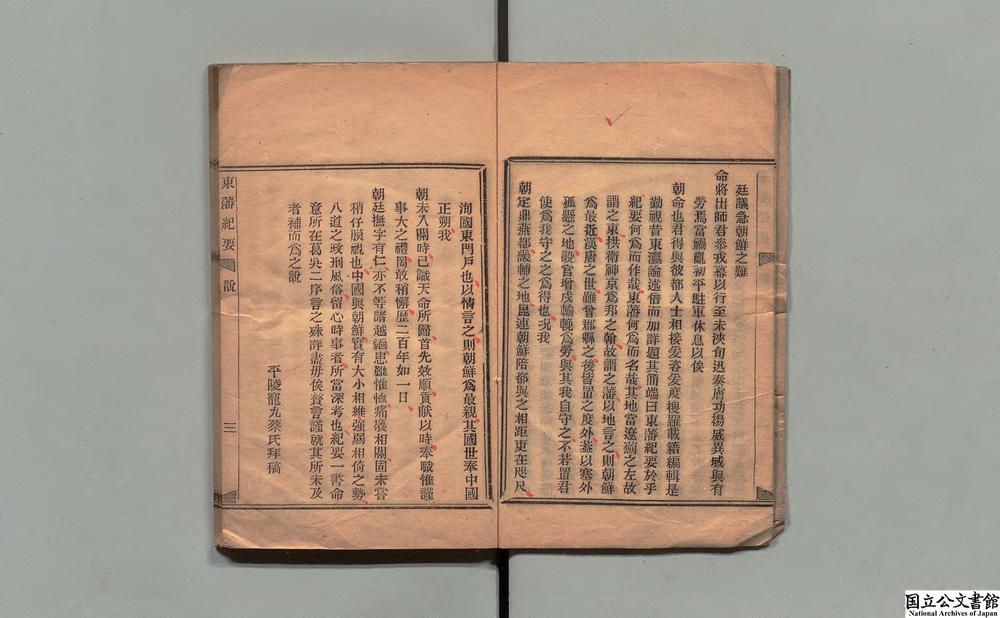 廷議急朝鮮之難
命將出師君參戎幕以行至未浹旬迅奏膚功揚威異域與有
勞焉當禍亂初平駐軍休息以俟
朝命也君得與彼都人士相接爰咨爰度搜羅載籍編輯是
勤視昔東瀛論述倍而加詳題其簡端曰東藩紀要於乎
紀要何爲而作哉東藩何爲而名哉其地當遼薊之左故
謂之東拱衛神京爲邦之翰故謂之藩以地言之則朝鮮
爲最近漢唐之世雖曾郡縣之後皆置之度外蓋以塞外
孤懸之地設官增戍輸輓爲勞與其我自守之不若置君
使爲我守之之爲得也況我
朝定鼎燕都畿輔之地毘連朝鮮陪都與之相距更在咫尺
洵國東門戶也以情言之則朝鮮爲最親其國世奉中國
正朔我
朝未入關時已識天命所歸首先效順貢獻以時奉職惟謹
事大之禮罔敢稍懈歷二百年如一日
朝廷撫字有仁亦不等諸越絕忠讜惟恤痛癢相關固未嘗
稍仔膜視也中國與朝鮮實有大小相維強弱相倚之勢
八道之政刑風俗留心時事者所當深考也紀要一書命
意所在葛吳二序言之殊詳盡毋俟贅言謹就其所未及
者補而爲之說
平陵寵九蔡氏拜稿
東藩紀要
說
三
国立公文書館
National Archives of Japan